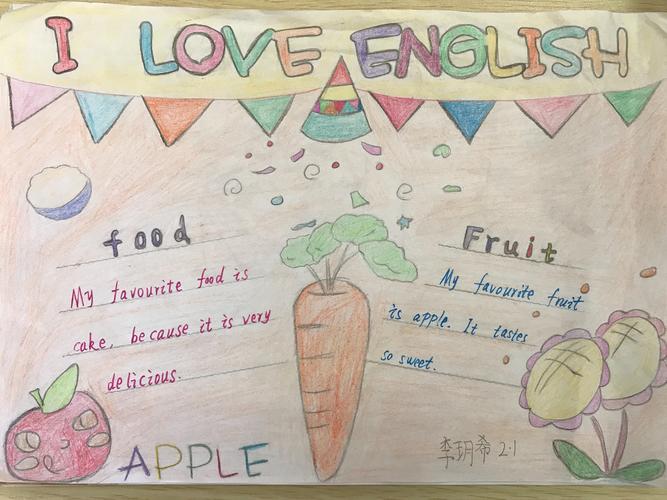 I LOVE ENGLISH
food
My favourite food is
cake, because it is very
delicious.
Fruit
My favourite fruit
is apple. It tastes
so sweet.
APPLE
李玥希 2.1